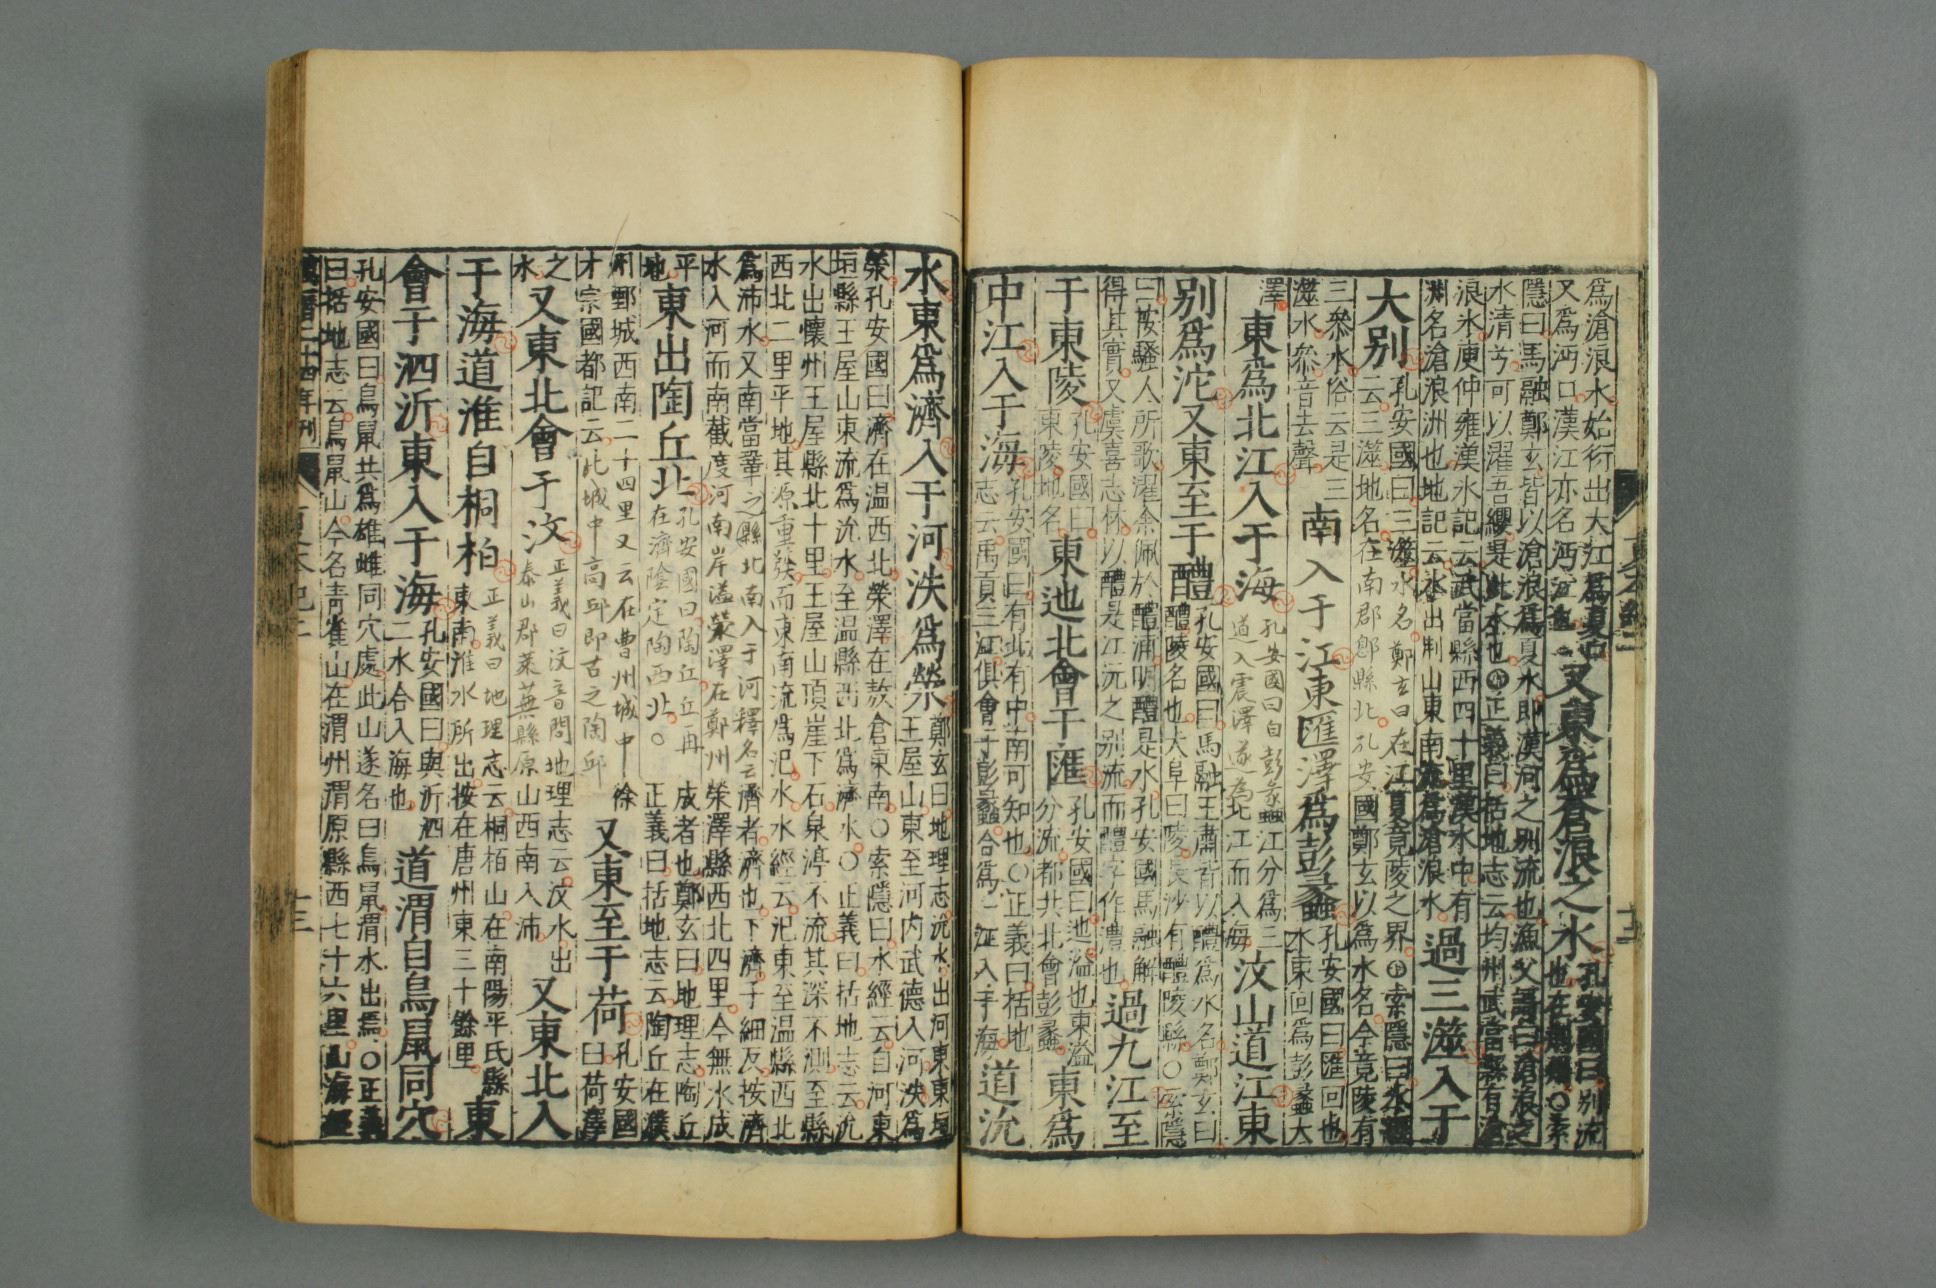 爲滄浪水始行出大江爲夏口
又爲沔口漢江亦名沔江也
又東爲蒼浪之水
孔安國曰別流
也在荊州〇索
隱曰馬融鄭玄皆以滄浪爲夏水即漢河之別流也漁父謌曰滄浪之
水清兮可以濯吾纓是此水也〇正義曰括地志云均州武當縣有滄
浪水庾仲雍漢水記云武當縣西四十里漢水中有
洲名滄浪洲也地記云水出荆山東南流爲滄浪水
過三澨入于
大別
孔安國曰三澨水名鄭玄曰在江夏竟陵之界〇索隱曰水經
云三澨地名在南郡邔縣北孔安國鄭玄以爲水名今竟陵有
三參水俗云是三
澨水參音去聲
南入于江東匯澤爲彭蠡
孔安國曰匯回也
水東回爲彭蠡大
澤
東爲北江入于海
孔安國曰自彭蠡江分爲三
道入震澤遂為北江而入海
汶山道江東
別爲沱又東至于醴
孔安國曰馬融王肅皆以醴爲水名鄭玄曰
醴陵名也大阜曰陵長沙有醴陵縣〇索隱
曰按騷人所歌濯余佩於醴浦明醴是水孔安國馬融解
得其實又虞喜志林以醴是江沅之別流而醴字作澧也
過九江至
于東陵
孔安國曰
東陵地名
東迆北會于匯
孔安國曰迆溢也東溢
分流都共北會彭蠡
東爲
中江入于海
孔安國曰有北有中南可知也〇正義曰括地
志云禹貢三江俱會于彭蠡合爲一江入于海
道沇
水東爲濟入于河泆爲滎
鄭玄曰地理志沇水出河東東垣
王屋山東至河內武德入河泆爲
滎孔安國曰濟在温西北滎澤在敖倉東南〇索隱曰水經云自河東
垣縣王屋山東流爲沇水至温縣西北爲濟水〇正義曰括地志云沇
水出懷州王屋縣北十里王屋山頂崖下石泉渟不流其深不測至縣
西北二里平地其源重發而東南流爲汜水水經云汜東至温縣西北
爲沛水又南當鞏之縣北南入于河釋名云濟者濟也下濟子細反按濟
水入河而南截度河南岸溢滎澤在鄭州滎澤縣西北四里今無水成
平
地
東出陶丘北
孔安國曰陶丘丘再
在濟陰定陶西北〇
成者也鄭玄曰地理志陶丘
正義曰括地志云陶丘在濮
州鄄城西南二十四里又云在曹州城中徐
才宗國都記云此城中高邱即古之陶邱
又東至于荷
孔安國
曰荷澤
之
水
又東北會于汶
正義曰汶音問地理志云汶水出
泰山郡萊蕪縣原山西南入沛
又東北入
于海道淮自桐柏
正義曰地理志云桐栢山在南陽平氏縣
東南淮水所出按在唐州東三十餘里
東
會于泗沂東入于海
孔安國曰與沂泗
二水合入海也
道渭自鳥鼠同穴
孔安國曰鳥鼠共爲雄雌同穴處此山遂名曰鳥鼠渭水出焉〇正義
曰括地志云鳥鼠山今名青雀山在渭州渭原縣西七十六里山海經
十三